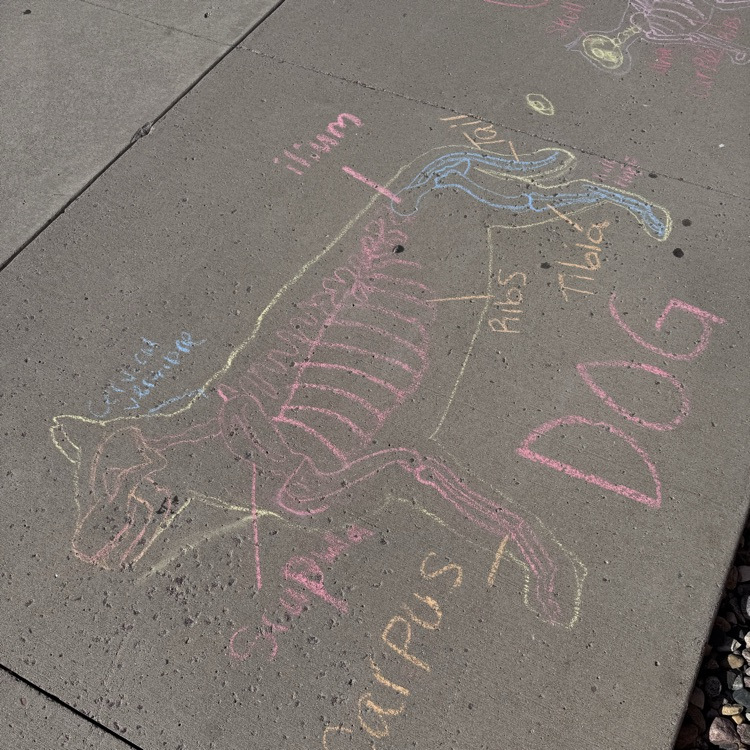 ilium
Tail
Tibia
Ribs
DOG
Cervical
vertebrae
Scapula
Carpus
Skull